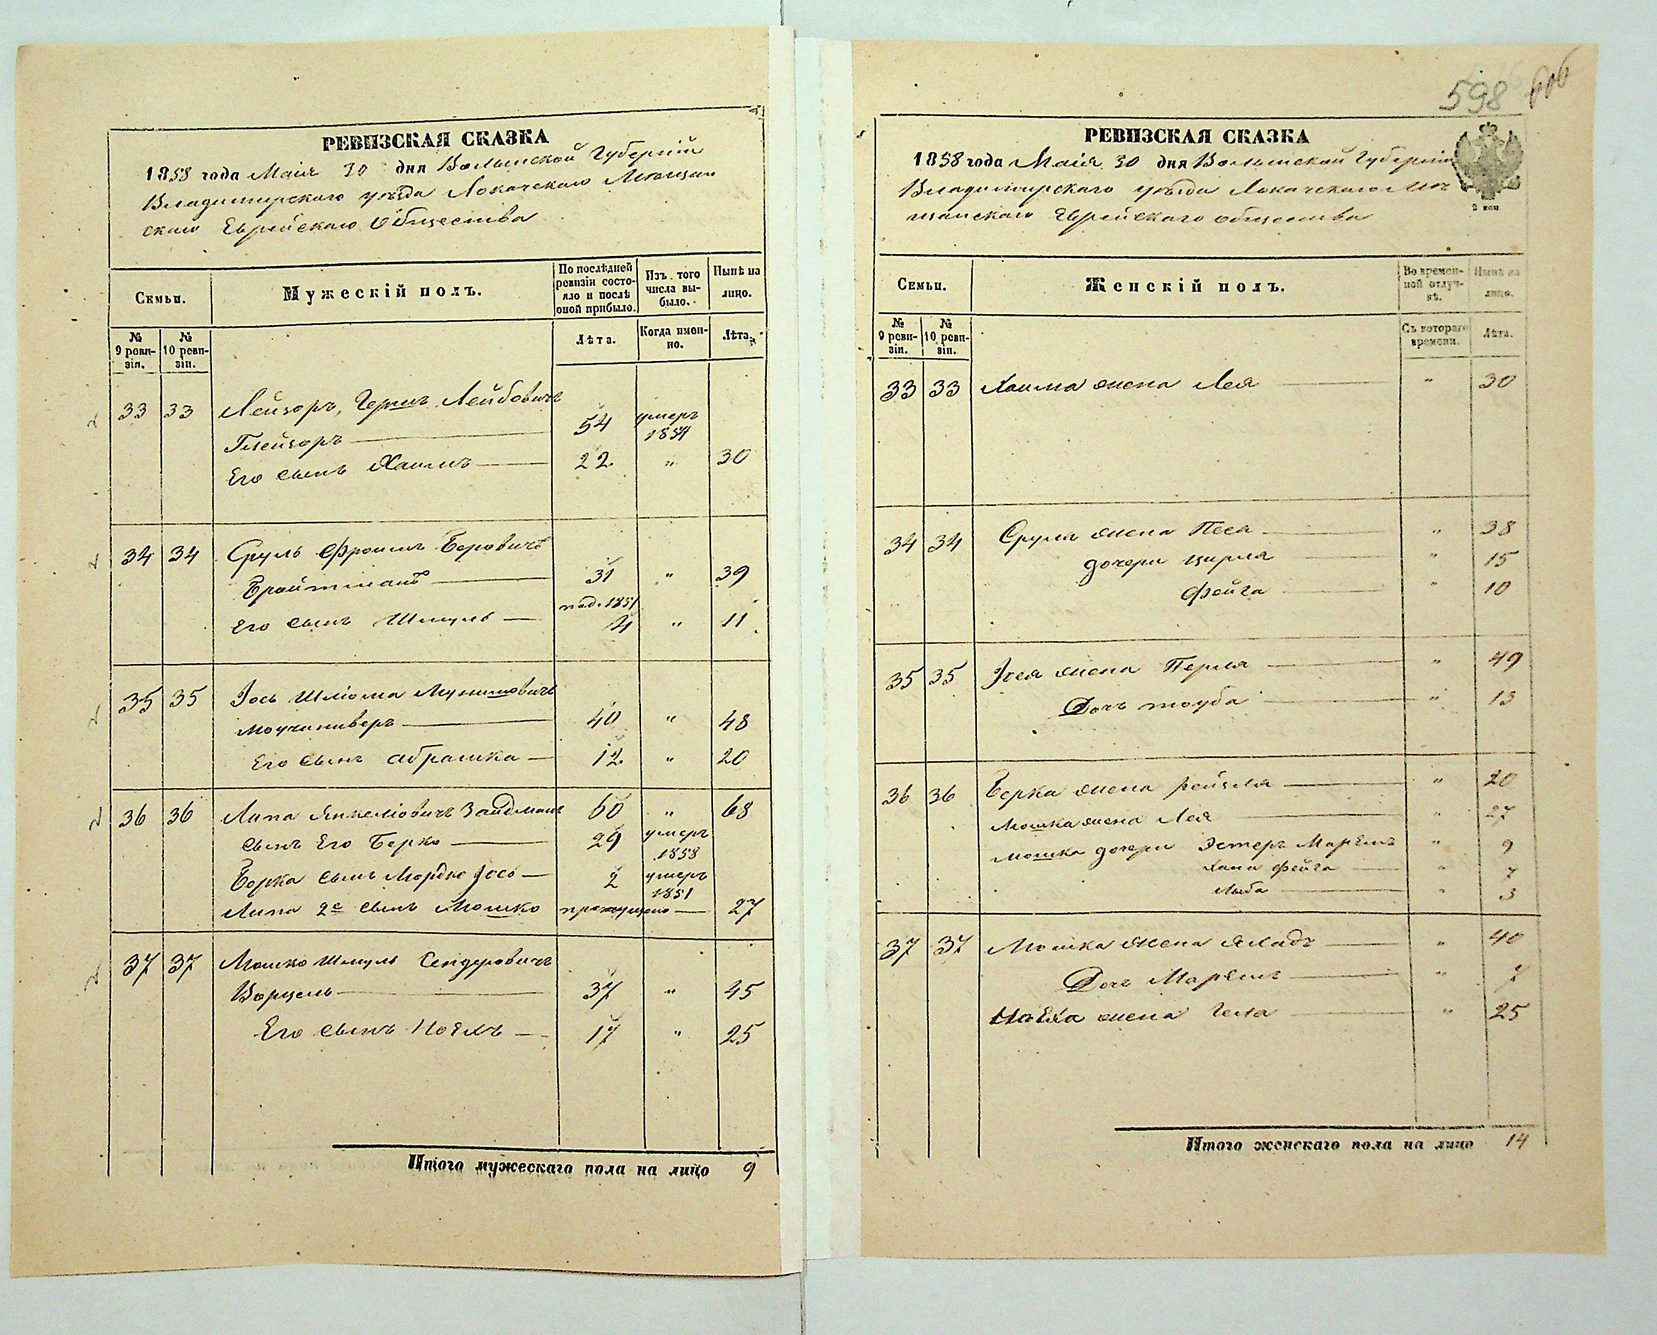 598 606
РЕВИЗСКАЯ СКАЗКА
1858 года Маія 30 дня Волынской Губерніи
Владимирскаго уѣзда Локачскаго Мѣщан
скаго Еврейскаго Общества
Семьи.
Мужескій полъ.
По послѣдней ревизіи состояло и послѣ оной прибыло.
Изъ того числа выбыло.
Нынѣ на лицо.
№ 9 ревизіи.
№ 10 ревизіи.
Лѣта.
Когда именно.
Лѣта.
33 33 Лейзоръ, Гершъ Лейбовичъ
54 умеръ 1854
Его сынъ Хаимъ 22 " 30
34 34 Сруль Фроимъ Беровичъ
Бройтманъ 31 " 39
Его сынъ Шмуль 4 " 11
35 35 Іось Шліома
40 " 48
Его сынъ Абрашка 12 " 20
36 36 Липа Янкеліовичъ Зайдманъ 60 " 68
Сынъ Его Берко 29 умеръ 1858
Берка сынъ Мордко Іось 2 умеръ 1851
Липа 2й сынъ Мошко пропущено 27
37 37 Мошко Шмуль Сендеровичъ
Ворцель 37 " 45
Его сынъ Ноехъ 17 " 25
Итого мужескаго пола на лицо 9
РЕВИЗСКАЯ СКАЗКА
1858 года Маія 30 дня Волынской Губерніи
Владимирскаго уѣзда Локачскаго Мѣ
щанскаго Еврейскаго общества
Семьи.
Женскій полъ.
Во временной отлучкѣ.
Нынѣ на лицо.
№ 9 ревизіи.
№ 10 ревизіи.
Съ котораго времени.
Лѣта.
33 33 Хаима жена Лея " 30
34 34 Сруля жена Песя " 38
дочери Цирля " 15
Фейга " 10
35 35 Іося жена Перля " 49
Дочь Тоуба " 13
36 36 Берка жена Рейзля " 20
Мошка жена Лея " 27
Мошка дочери Эстеръ Марьемъ " 9
Хана Фейга " 7
Либа " 3
37 37 Мошка жена " 40
Дочь Марьемъ " 7
Ноеха жена Гела " 25
Итого женскаго пола на лицо 14